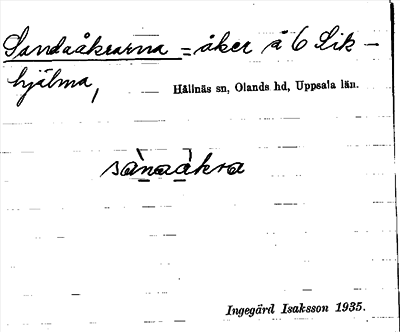 Sandaåkrarna = åker å 6 Sik-
hjälma,
Hållnäs sn, Olands hd, Uppsala län.
sànaàkra
Ingegärd Isaksson 1935.